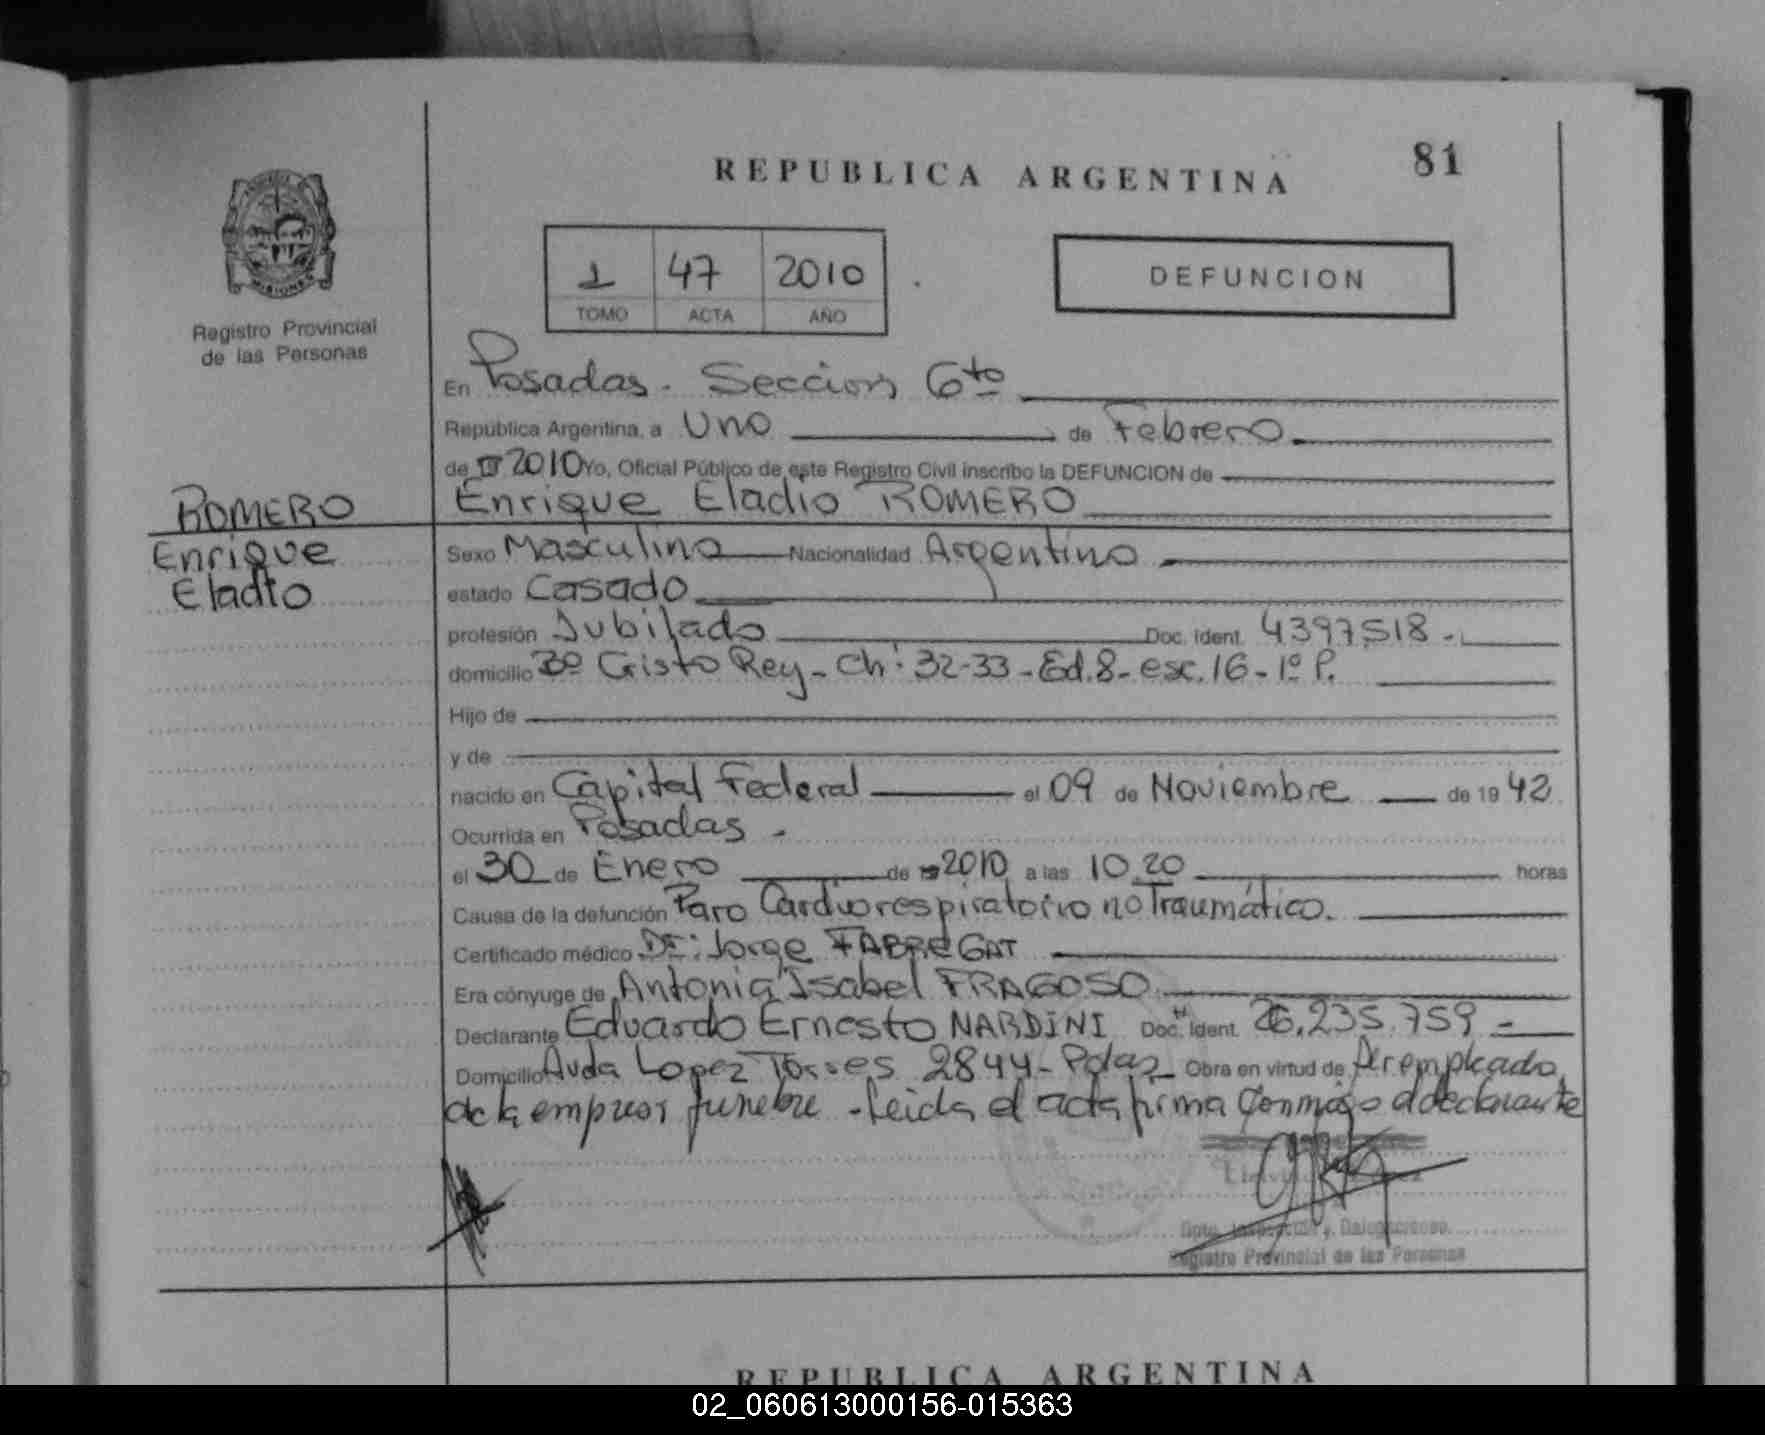 REPUBLICA ARGENTINA
81
MISIONES
Registro Provincial
de las Personas
1 47 2010
TOMO ACTA AÑO
DEFUNCION
En Posadas - Seccion 6to
República Argentina, a Uno de Febrero
de 2010 Yo, Oficial Público de este Registro Civil inscribo la DEFUNCION de
Enrique Eladio ROMERO
ROMERO
Enrique
Eladio
Sexo Masculino Nacionalidad Argentino
estado Casado
profesión Jubilado Doc. Ident. 4397518-
domicilio Bº Cristo Rey - Ch: 32-33 - Ed.8- esc. 16 - 1º P.
Hijo de
y de
nacido en Capital Federal el 09 de Noviembre de 19 42
Ocurrida en Posadas -
el 30 de Enero de 2010 a las 10.20 horas
Causa de la defunción Paro Cardiorespiratorio no Traumático.
Certificado médico Dr: Jorge FABREGAT
Era cónyuge de Antonia Isabel FRAGOSO
Declarante Eduardo Ernesto NARDINI Doc. Ident. 26.235.759 -
Domicilio Avda Lopez Torres 2844 - Pdas - Obra en virtud de ser empleado
de la empresa funebre - Leida el acta firma conmigo el declarante
Registro Provincial de las Personas
REPUBLICA ARGENTINA
02_060613000156-015363